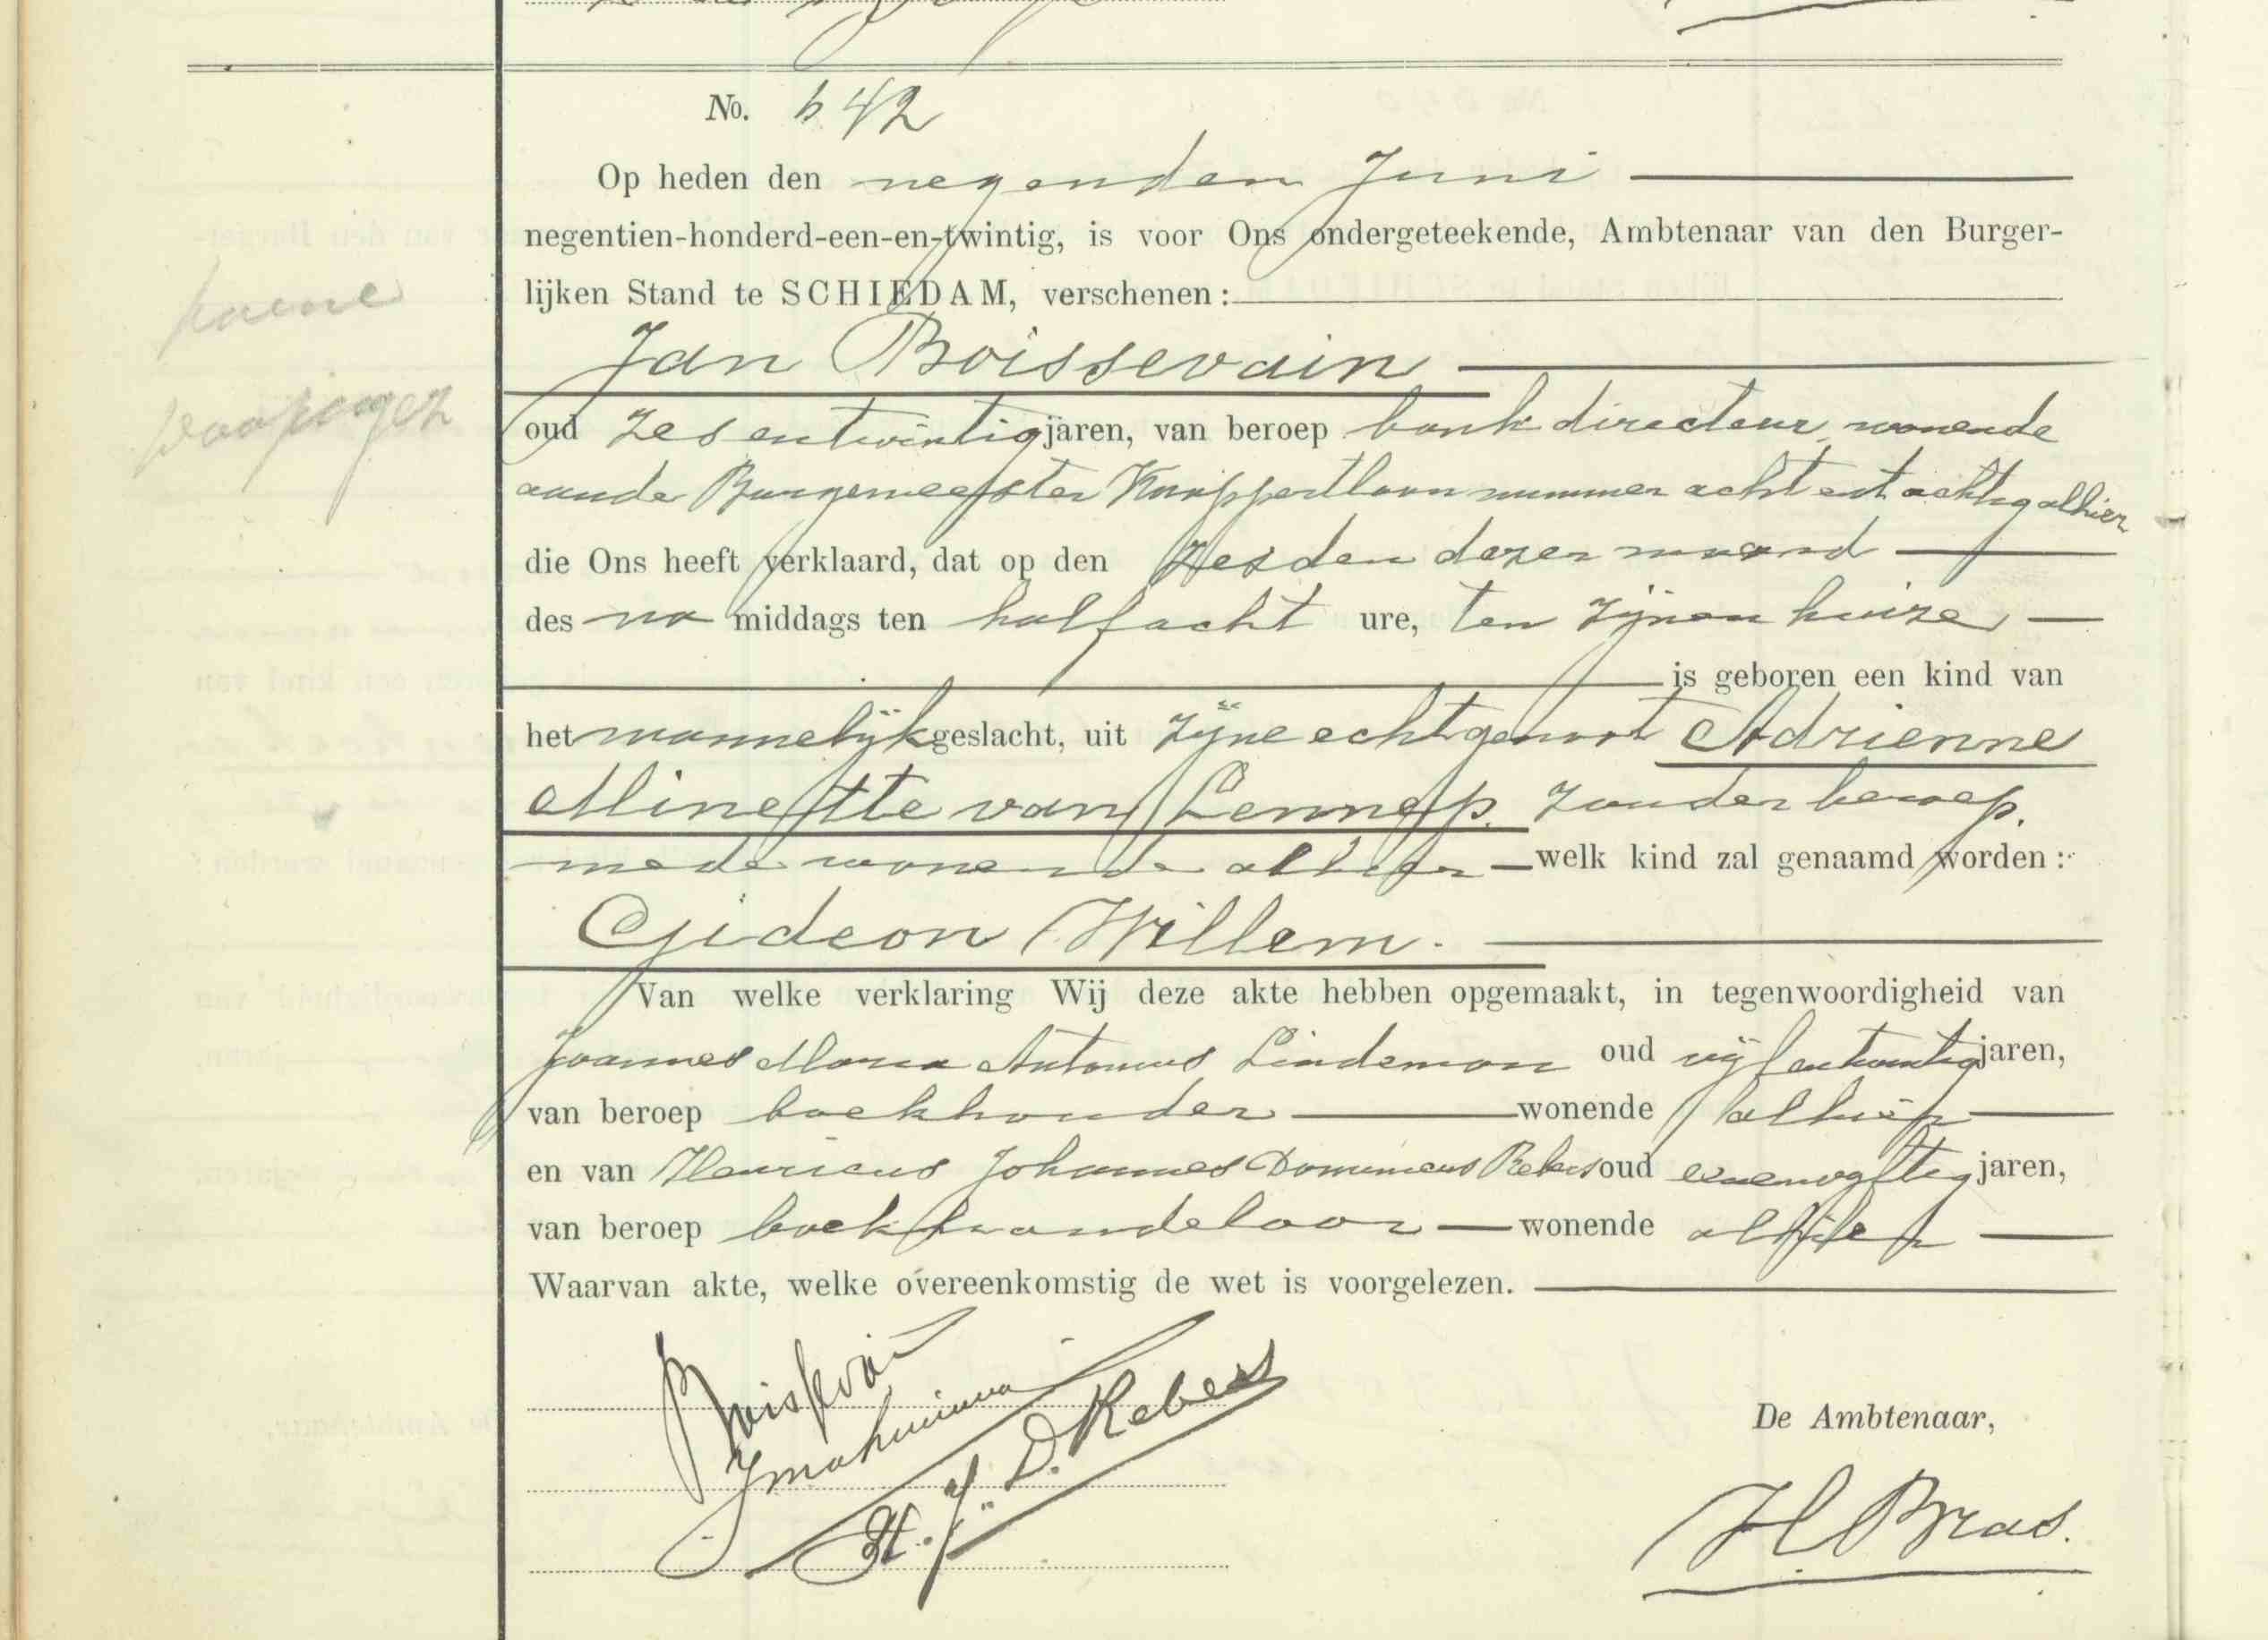 No. 642
Op heden den negenden Juni
negentien-honderd-een-en-twintig, is voor Ons ondergeteekende, Ambtenaar van den Burger-
lijken Stand te SCHIEDAM, verschenen:
Jan Boissevain
oud zesentwintig jaren, van beroep bankdirecteur, wonende
aande Burgemeester Knappertlaan nummer achtentachtig alhier
die Ons heeft verklaard, dat op den zesden dezer maand
des na middags ten half acht ure, ten zijnen huize
is geboren een kind van
het mannelijk geslacht, uit zijne echtgenoot Adrienne
Minette van Lennep, zonder beroep,
mede wonende alhier welk kind zal genaamd worden:
Gideon Willem.
Van welke verklaring Wij deze akte hebben opgemaakt, in tegenwoordigheid van
Joannes Maria Antonius Lindeman oud vijfentwintig jaren,
van beroep boekhouder wonende alhier
en van Henricus Johannes Dominicus Rebers oud eenenvijftig jaren,
van beroep boekhandelaar wonende alhier
Waarvan akte, welke overeenkomstig de wet is voorgelezen.
Boissevain
H. J. D. Rebers
De Ambtenaar,
H Bras.